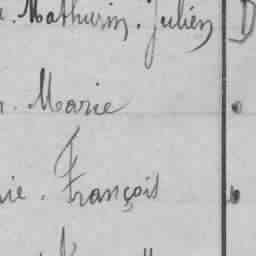 . Mathurin. Julien D
. Marie
ie. François